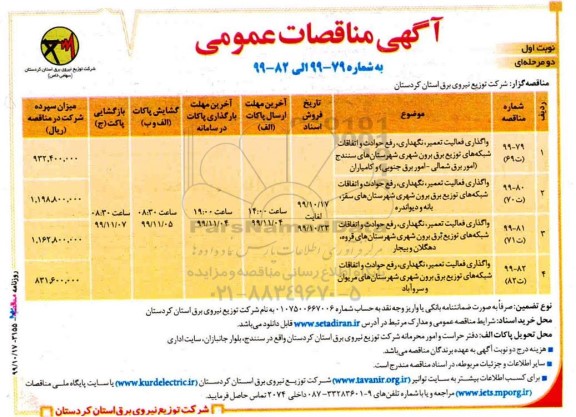 آگهی مناقصات عمومی
به شماره ۷۹-۹۹ الی ۸۲-۹۹
نوبت اول
دو مرحله‌ای
شرکت توزیع نیروی برق استان کردستان
(سهامی خاص)
مناقصه‌گزار: شرکت توزیع نیروی برق استان کردستان
ردیف | شماره مناقصه | موضوع | تاریخ فروش اسناد | آخرین مهلت ارسال پاکات (الف) | آخرین مهلت بارگذاری پاکات در سامانه | گشایش پاکات (الف و ب) | بازگشایی پاکت (ج) | میزان سپرده شرکت در مناقصه (ریال)
۱ | ۹۹-۷۹ (ت۶۹) | واگذاری فعالیت تعمیر، نگهداری، رفع حوادث و اتفاقات شبکه‌های توزیع برق برون شهری شهرستان‌های سنندج (امور برق شمالی - امور برق جنوبی) و کامیاران | ۹۳۲,۴۰۰,۰۰۰
۲ | ۹۹-۸۰ (ت۷۰) | واگذاری فعالیت تعمیر، نگهداری، رفع حوادث و اتفاقات شبکه‌های توزیع برق برون شهری شهرستان‌های سقز، بانه و دیواندره | ۱,۱۹۸,۸۰۰,۰۰۰
۹۹/۱۰/۱۷ لغایت | ساعت ۱۴:۰۰ ۹۹/۱۱/۰۴ | ساعت ۱۹:۰۰ ۹۹/۱۱/۰۴ | ساعت ۰۸:۳۰ ۹۹/۱۱/۰۵ | ساعت ۰۸:۳۰ ۹۹/۱۱/۰۷
۳ | ۹۹-۸۱ (ت۷۱) | واگذاری فعالیت تعمیر، نگهداری، رفع حوادث و اتفاقات شبکه‌های توزیع برق برون شهری شهرستان‌های قروه، دهگلان و بیجار | ۱,۱۶۲,۸۰۰,۰۰۰
۴ | ۹۹-۸۲ (ت۸۲) | واگذاری فعالیت تعمیر، نگهداری، رفع حوادث و اتفاقات شبکه‌های توزیع برق برون شهری شهرستان‌های مریوان و سروآباد | ۸۳۱,۶۰۰,۰۰۰
ParsNamadData
پایگاه اطلاع رسانی مناقصه و مزایده
۰۲۱-۸۸۳۴۹۶۷۰-۵
نوع تضمین: صرفاً به صورت ضمانتنامه بانکی یا واریز وجه نقد به حساب شماره ۰۱۰۷۵۰۰۶۶۷۰۰۶ به نام شرکت توزیع نیروی برق استان کردستان
محل خرید اسناد: شرایط مناقصه عمومی و مدارک مرتبط در آدرس www.setadiran.ir قابل دانلود می‌باشد.
محل تحویل پاکات الف: دفتر حراست و امور محرمانه شرکت توزیع نیروی برق استان کردستان واقع در سنندج، بلوار جانبازان، سایت اداری
هزینه درج دو نوبت آگهی به عهده برندگان مناقصه می‌باشد.
سایر اطلاعات و جزئیات مربوطه، در اسناد مناقصه مندرج است.
برای کسب اطلاعات بیشتر به سایت توانیر (www.tavanir.org.ir) شرکت توزیع نیروی برق استان کردستان (www.kurdelectric.ir) یا سایت پایگاه ملی مناقصات
(www.iets.mporg.ir) مراجعه و یا با شماره تلفن‌های ۹-۳۳۲۸۳۶۰۱-۰۸۷ داخلی ۲۰۷۴ تماس حاصل فرمایید.
شرکت توزیع نیروی برق استان کردستان